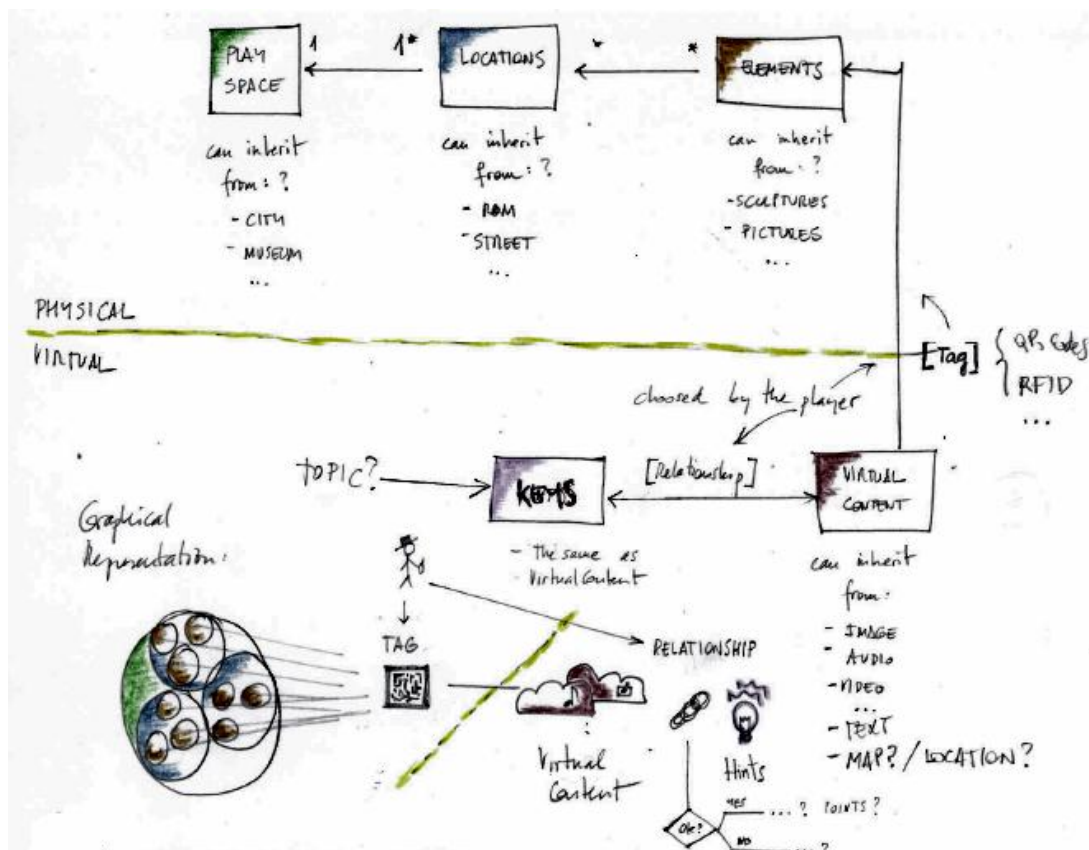 PLAY
SPACE
1
1*
LOCATIONS
*
*
ELEMENTS
can inherit
from: ?
- CITY
- MUSEUM
...
can inherit
from: ?
- ROM
- STREET
...
can inherit
from: ?
- SCULPTURES
- PICTURES
...
PHYSICAL
VIRTUAL
[Tag]
QR Codes
RFID
...
choosed by the player
TOPIC?
[Relationship]
VIRTUAL
CONTENT
- The same as
Virtual Content
Graphical
Representation:
can inherit
from:
- IMAGE
- AUDIO
- VIDEO
...
- TEXT
- MAP? / LOCATION?
TAG
RELATIONSHIP
Virtual
Content
Hints
Ok?
YES
... ? POINTS?
NO
... ?